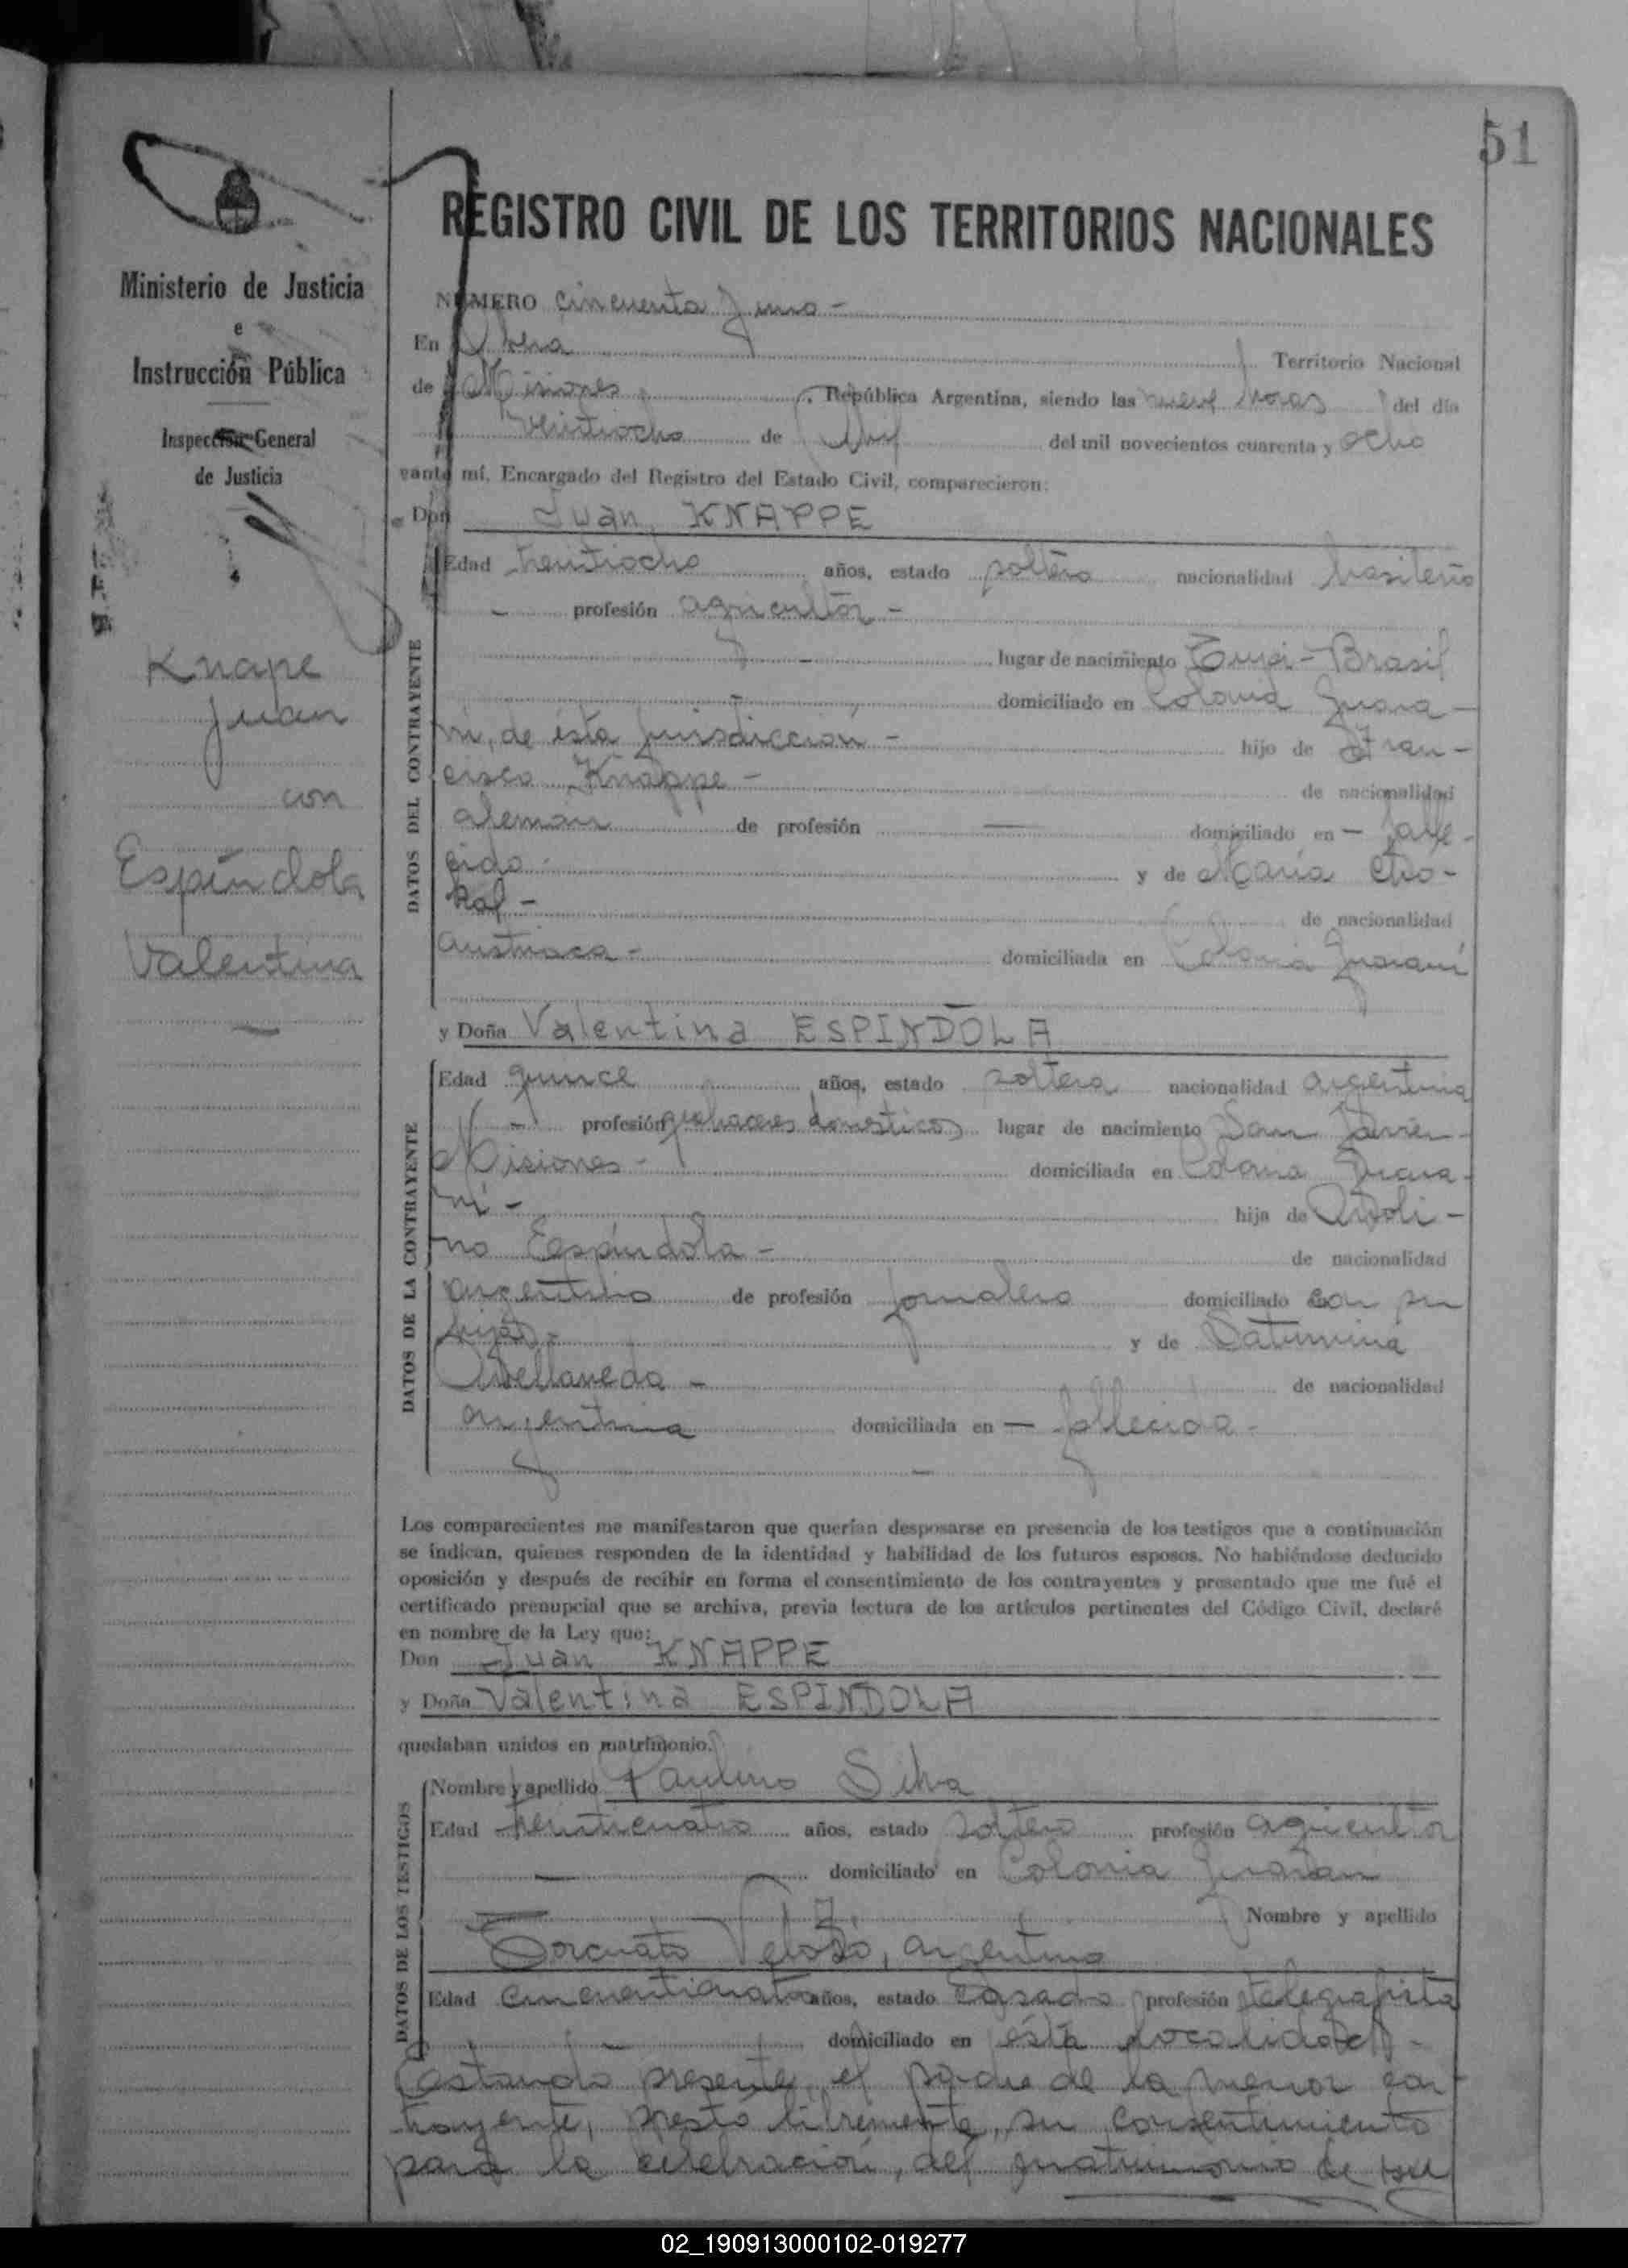 51
Ministerio de Justicia
e
Instrucción Pública
Inspección General
de Justicia
Knape
Juan
con
Espíndola
Valentina
REGISTRO CIVIL DE LOS TERRITORIOS NACIONALES
NÚMERO cincuenta y uno -
En Obera Territorio Nacional
de Misiones, República Argentina, siendo las nueve horas del día
veintiocho de del mil novecientos cuarenta y ocho
ante mí, Encargado del Registro del Estado Civil, comparecieron:
Don Juan KNAPPE
DATOS DEL CONTRAYENTE
Edad treintiocho años, estado soltero nacionalidad brasileño
- profesión agricultor -
lugar de nacimiento - Brasil
domiciliado en Colonia Guara-
ní, de ésta jurisdicción - hijo de Fran-
cisco Knappe - de nacionalidad
alemán de profesión — domiciliado en - falle-
cido - y de María
- de nacionalidad
austriaca - domiciliada en Colonia Guaraní
y Doña Valentina ESPINDOLA
DATOS DE LA CONTRAYENTE
Edad quince años, estado soltera nacionalidad argentina
- profesión quehaceres domésticos lugar de nacimiento San Javier-
Misiones - domiciliada en Colonia Guara-
ní - hija de
no Espíndola - de nacionalidad
argentino de profesión jornalero domiciliado con su
hija - y de Saturnina
Avellaneda - de nacionalidad
argentina domiciliada en — fallecida -
Los comparecientes me manifestaron que querían desposarse en presencia de los testigos que a continuación
se indican, quienes responden de la identidad y habilidad de los futuros esposos. No habiéndose deducido
oposición y después de recibir en forma el consentimiento de los contrayentes y presentado que me fué el
certificado prenupcial que se archiva, previa lectura de los artículos pertinentes del Código Civil, declaré
en nombre de la Ley que:
Don Juan KNAPPE
y Doña Valentina ESPINDOLA
quedaban unidos en matrimonio.
DATOS DE LOS TESTIGOS
Nombre y apellido Paulino Silva
Edad treinticuatro años, estado soltero profesión agricultor
domiciliado en Colonia Guaraní
Nombre y apellido
Torcuato Velozo, argentino
Edad cincuenticuatro años, estado casado profesión telegrafista
domiciliado en ésta localidad -
Estando presente, el padre de la menor con-
trayente, prestó libremente, su consentimiento
para la celebración, del matrimonio de su
02_190913000102-019277